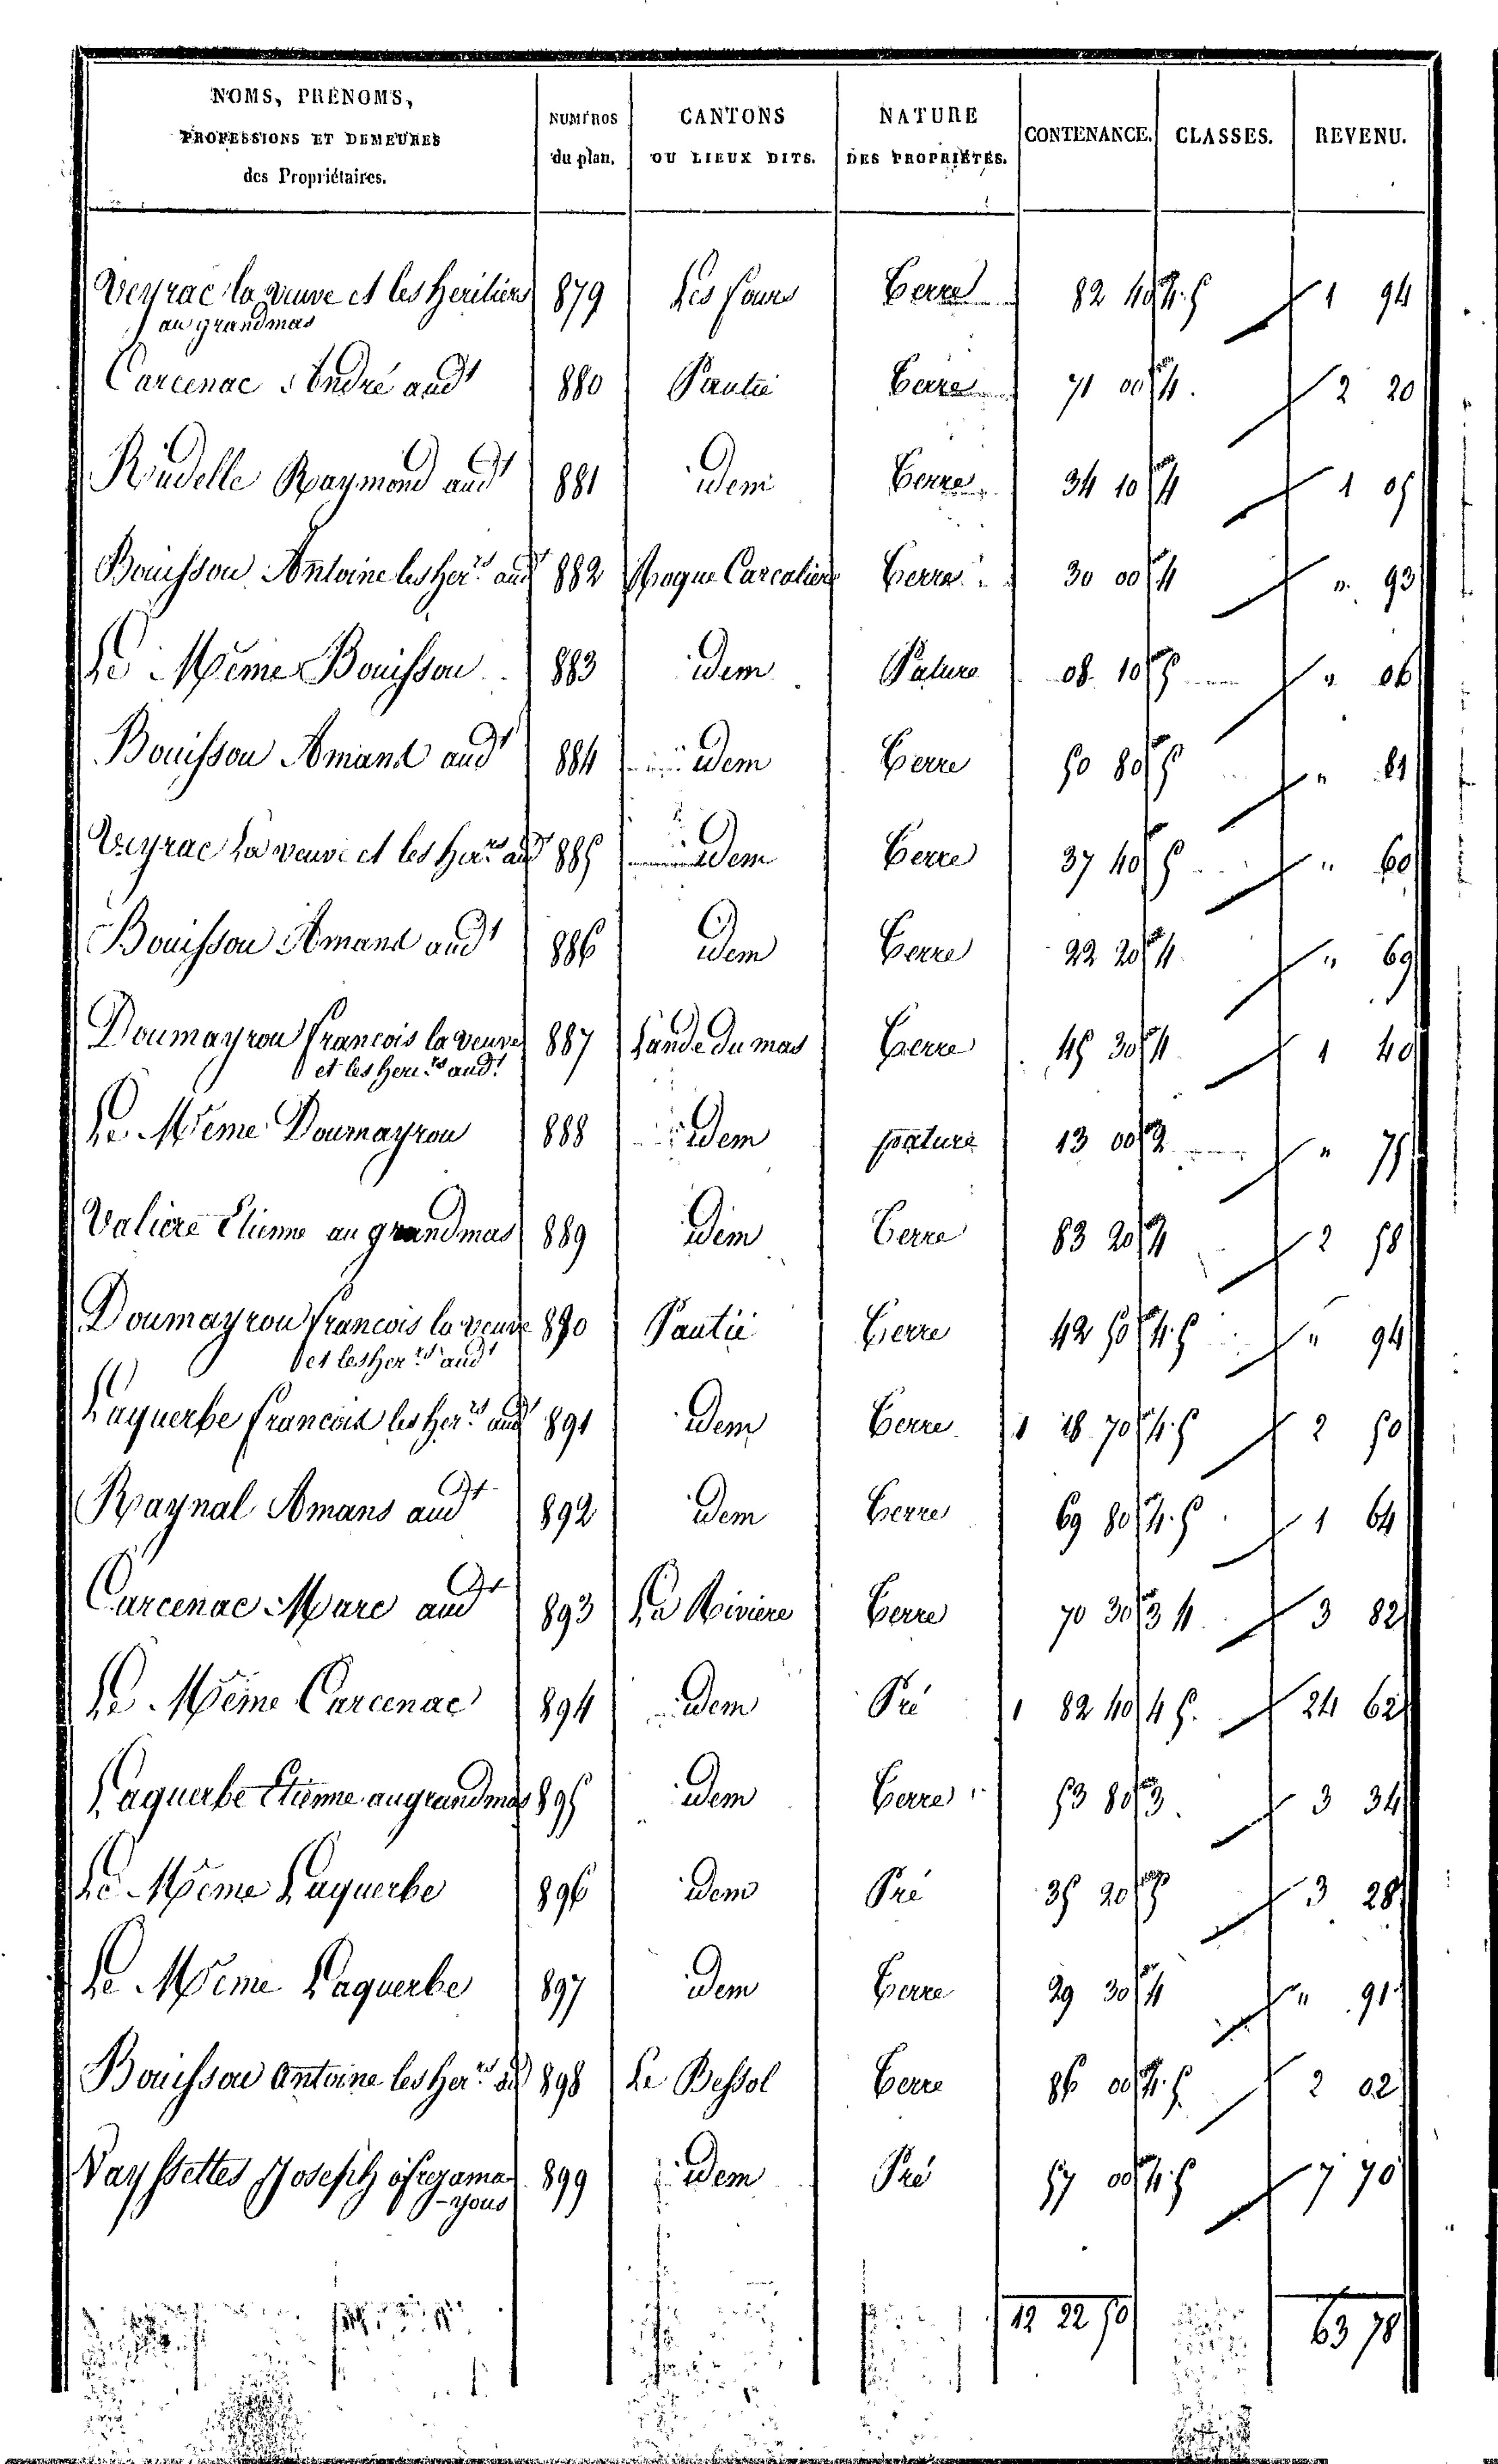 NOMS, PRÉNOMS, PROFESSIONS ET DEMEURES des Propriétaires. NUMÉROS du plan. CANTONS OU LIEUX DITS. NATURE DES PROPRIÉTÉS. CONTENANCE. CLASSES. REVENU.
Veyrac la veuve et les heritiers 879 Les fours Terre 82 40 4.5 1 94
au grandmas
Carcenac André aud.t 880 Pautié Terre 71 00 4. 2 20
Rudelle Raymond aud.t 881 idem Terre 34 10 4 1 05
Bouissou Antoine les her.rs aud.t 882 Roque Carcaliere Terre 30 00 4 " 93
Le Même Bouissou 883 idem Pature 08 10 5 " 06
Bouissou Amans aud.t 884 idem Terre 50 80 5 " 81
Veyrac La veuve et les her.rs aud.t 885 idem Terre 37 40 5 " 60
Bouissou Amans aud.t 886 idem Terre 22 20 4 " 69
Doumayrou francois la veuve 887 Lande du mas Terre 45 30 4 1 40
et les heri.rs aud.t
Le Même Doumayrou 888 idem pature 13 00 2 " 75
Valiere Etienne au grandmas 889 idem Terre 83 20 4 2 58
Doumayrou francois la veuve 890 Pautié Terre 42 50 4.5 " 94
et les her.rs aud.t
Laquerbe francois les her.rs aud.t 891 idem Terre 1 18 70 4.5 2 50
Raynal Amans aud.t 892 idem Terre 69 80 4.5 1 64
Carcenac Marc aud.t 893 La Riviere Terre 70 30 3 4 3 82
Le Même Carcenac 894 idem Pré 1 82 40 4 5. 24 62
Laquerbe Etienne au grandmas 895 idem Terre 53 80 3. 3 34
Le Même Laquerbe 896 idem Pré 35 20 5 3 28
Le Même Laquerbe 897 idem Terre 29 30 4 " 91
Bouissou Antoine les her.rs aud 898 Le Bessol Terre 86 00 4.5 2 02
Vayssettes Joseph à fregama 899 idem Pré 57 00 4.5 7 70
-yous
12 22 50 63 78